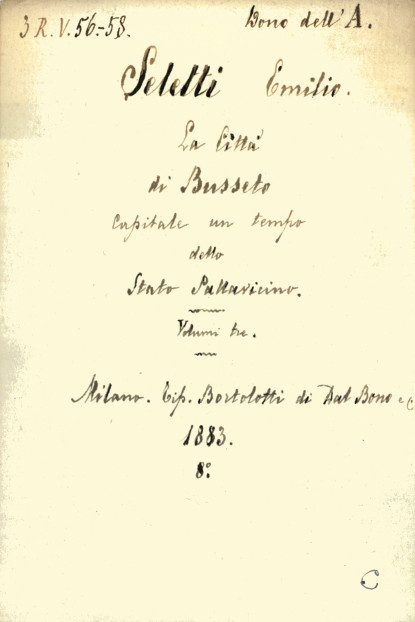 3 R.V. 56-58.
Dono dell'A.
Seletti Emilio.
La Città
di Busseto
capitale un tempo
dello
Stato Pallavicino.
Volumi tre.
Milano. Tip. Bortolotti di Dal Bono e C
1883.
8º
C